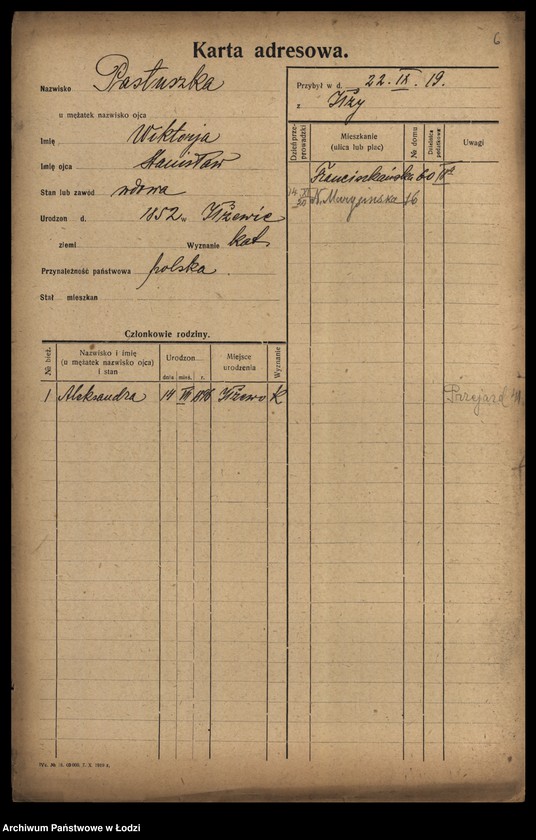 6
Karta adresowa.
Nazwisko Pastuszka
u mężatek nazwisko ojca
Imię Wiktorja
Imię ojca Stanisław
Stan lub zawód wdowa
Urodzon d. 1852 w
ziemi Wyznanie kat
Przynależność państwowa polska
Stał mieszkan
Przybył w d. 22. IX. 19.
z
Dzień przeprowadzki Mieszkanie (ulica lub plac) № domu Dzielnica podatkowa Uwagi
Franciszkańska 60
N. Maryśińska 16
Członkowie rodziny.
№ bież. Nazwisko i imię (u mężatek nazwisko ojca) i stan Urodzon Miejsce urodzenia Wyznanie
dnia mies. r.
1 Aleksandra 14 K
Przejazd
Archiwum Państwowe w Łodzi